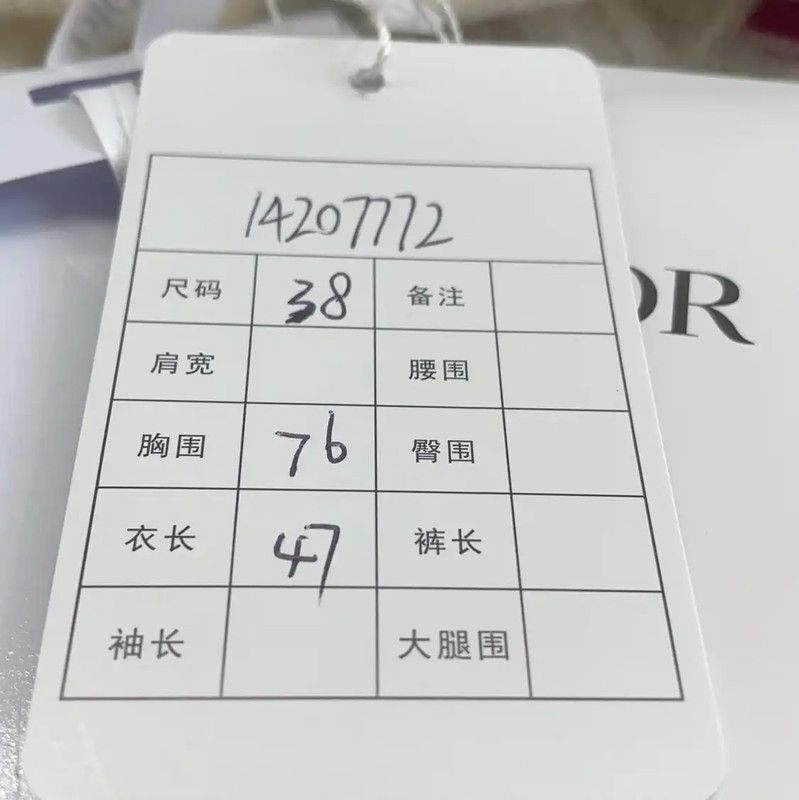 14207772
尺码 38 备注
肩宽 腰围
胸围 76 臀围
衣长 47 裤长
袖长 大腿围
OR